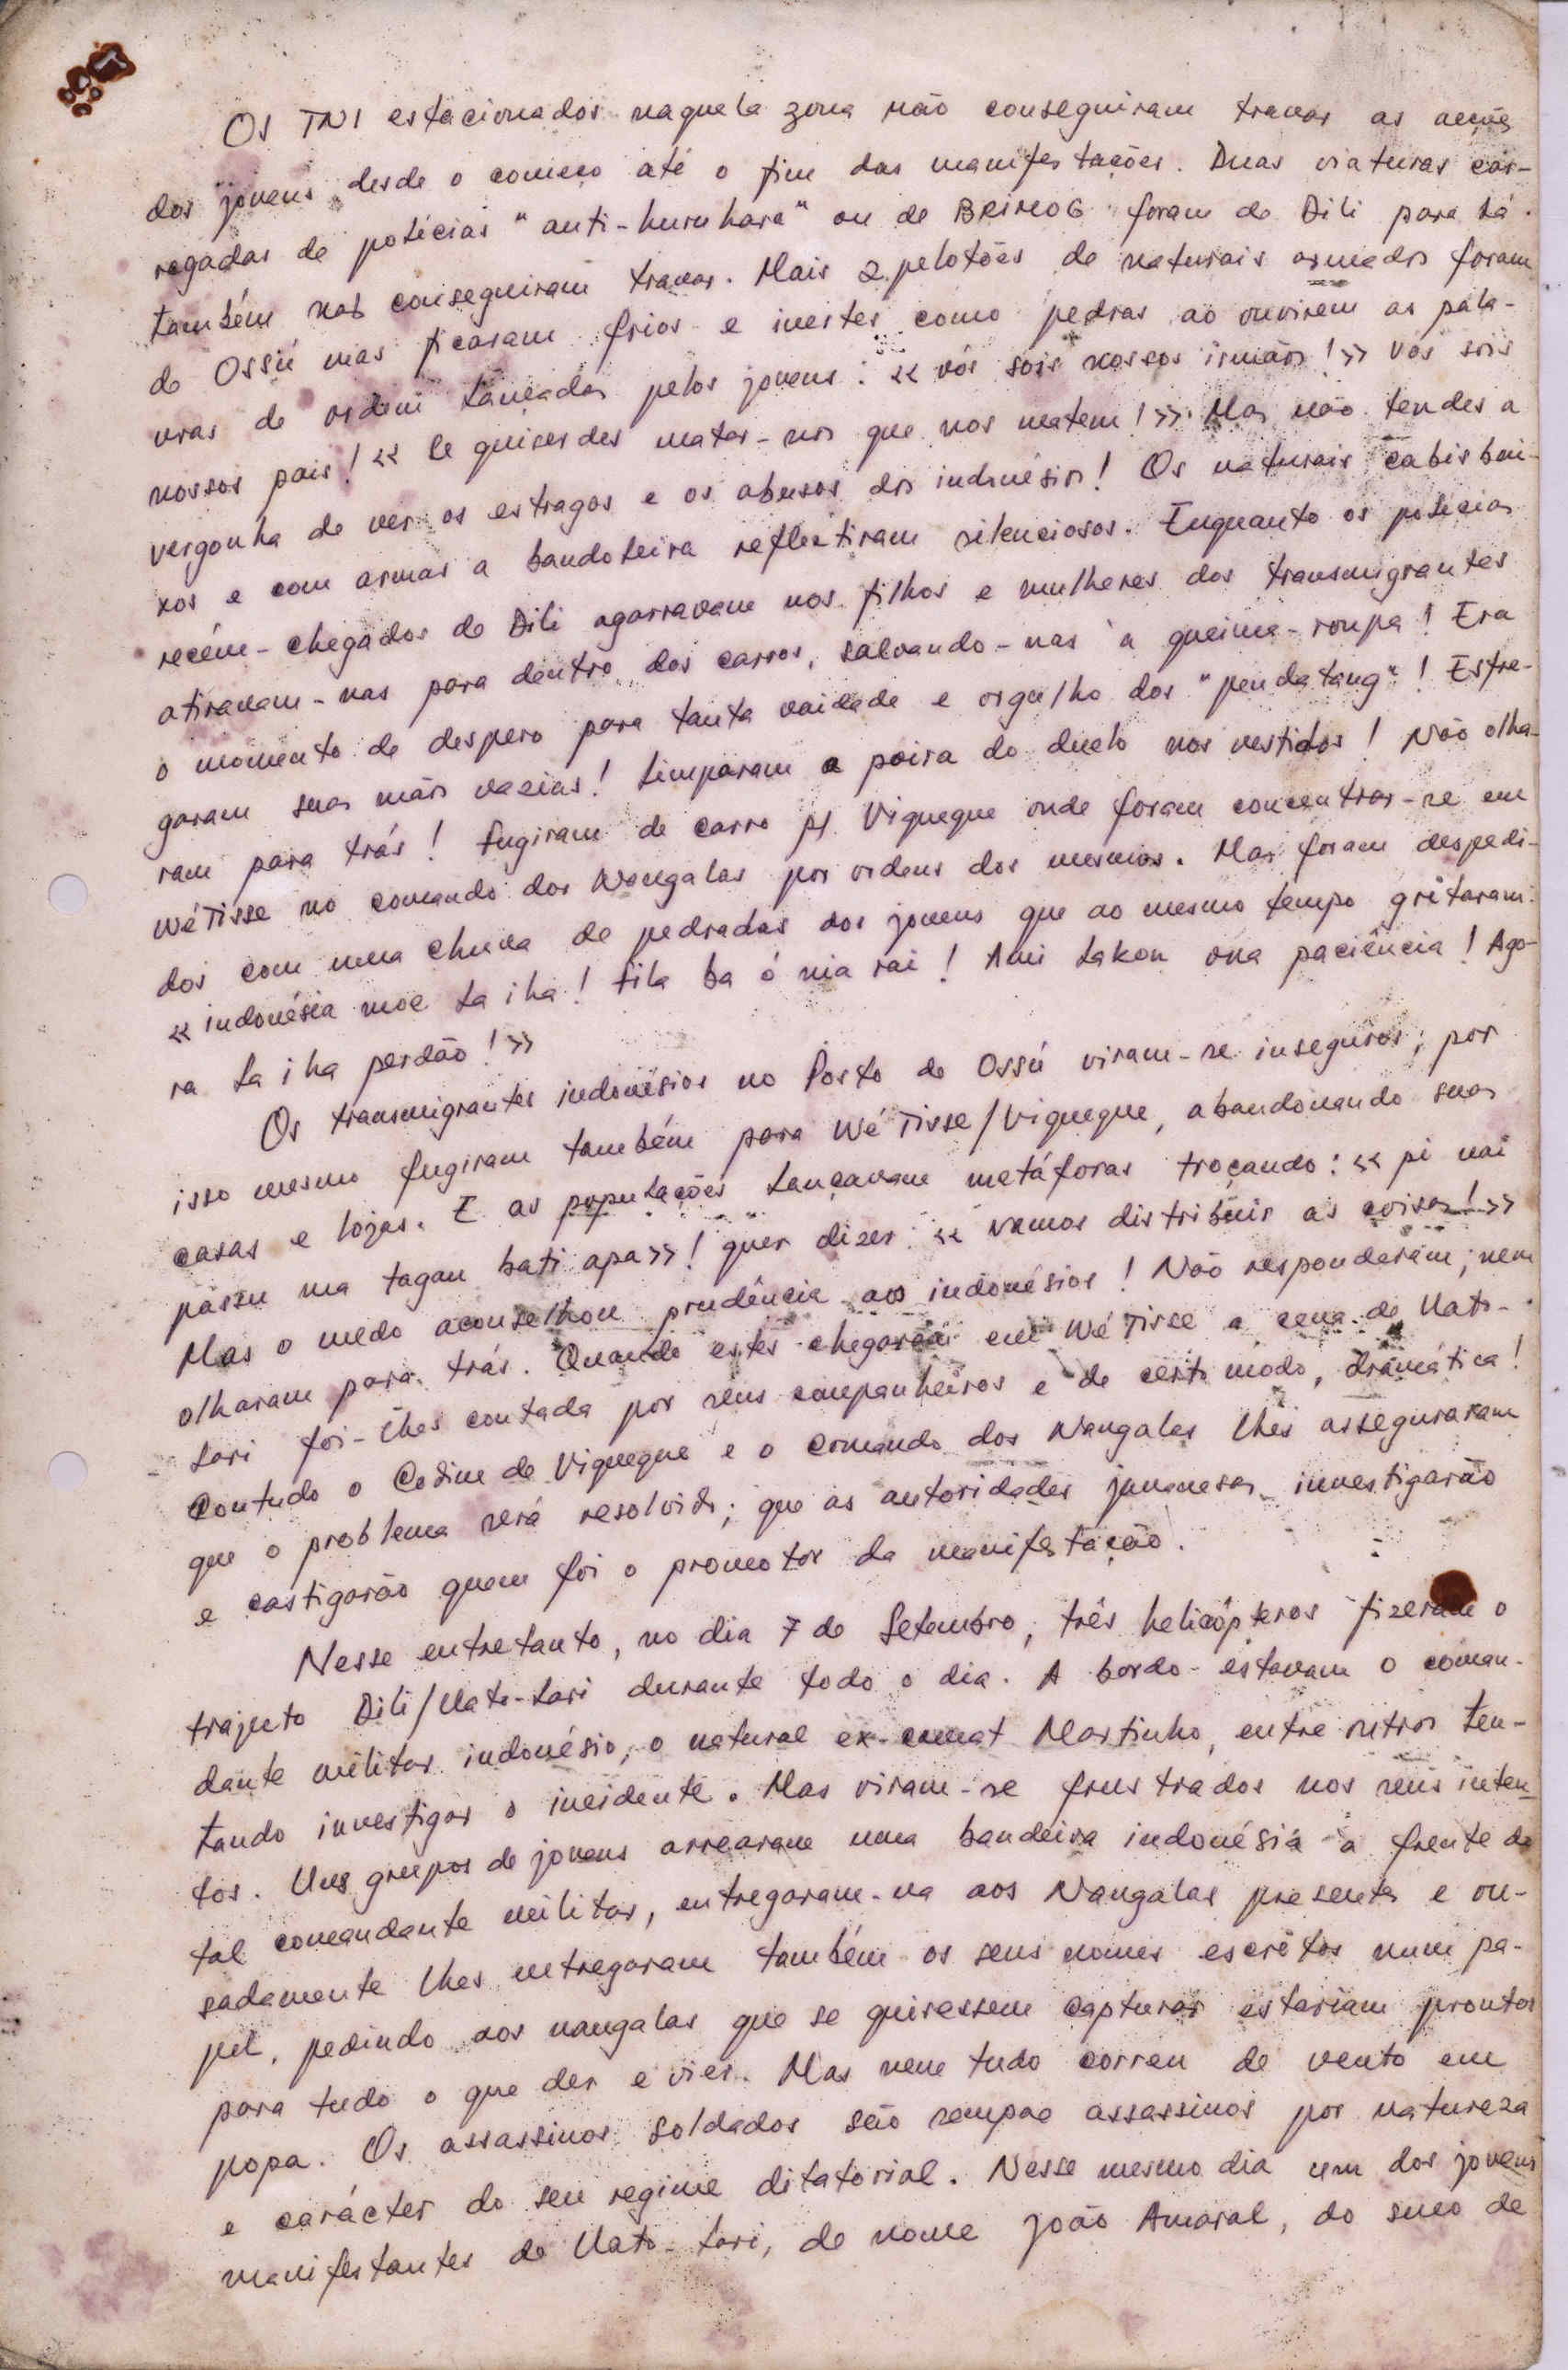 Os TNI estacionados naquela zona não conseguiram travar as acções
dos jovens desde o começo até o fim das manifestações. Duas viaturas car-
regadas de polícias "anti-huruhara" ou de BRIMOB foram de Dili para lá.
também não conseguiram travar. Mais 2 pelotões de naturais armados foram
de Ossú mas ficaram frios e inertes como pedras ao ouvirem as pala-
vras de ordem lançadas pelos jovens: « vós sois nossos irmãos!» vós sois
nossos pais! « Se quiserdes matar-nos que nos matem!». Mas não tendes a
vergonha de ver os estragos e os abusos dos indonésios! Os naturais cabisbai-
xos e com armas a bandoleira reflectiram silenciosos. Enquanto os polícias
recém-chegados de Dili agarravam nos filhos e mulheres dos transmigrantes
atiravam-nas para dentro dos carros, salvando-nas à queima-roupa! Era
o momento de despero para tanta vaidade e orgulho dos "pendatang"! Esfre-
garam suas mãos vazias! Limparam a poira do duelo nos vestidos! Não olha-
ram para trás! Fugiram de carro p/ Viqueque onde foram concentrar-se em
WéTisse no comando dos Nangalas por ordens dos mesmos. Mas foram despedi-
dos com uma chuva de pedradas dos jovens que ao mesmo tempo gritaram:
« indonésia moe la iha! fila ba ó nia rai! Ami lakon ona paciência! Ago-
ra la iha perdão!»
Os transmigrantes indonésios no Posto de Ossú viram-se inseguros; por
isso mesmo fugiram também para Wé Tisse/Viqueque, abandonando suas
casas e lojas. E as populações lançavam metáforas troçando: « pi nai
passu ma tagau bati apa»! quer dizer: « vamos distribuir as coisas!»
Mas o medo aconselhou prudência aos indonésios! Não responderam; nem
olharam para trás. Quando estes chegaram em Wé Tisse a cena de Uato-
Lari foi-lhes contada por seus companheiros e de certo modo, dramática!
Contudo o Codim de Viqueque e o comando dos Nangalas lhes asseguraram
que o problema será resolvido; que as autoridades javanesas investigarão
e castigarão quem foi o promotor da manifestação.
Nesse entretanto, no dia 7 de Setembro, três helicópteros fizeram o
trajecto Dili/Uato-Lari durante todo o dia. A bordo estavam o coman-
dante militar indonésio, o natural ex-camat Martinho, entre outros ten-
tando investigar o incidente. Mas viram-se frustrados nos seus inten-
tos. Uns grupos de jovens arrearam uma bandeira indonésia a frente do
tal comandante militar, entregaram-na aos Nangalas presentes e ou-
sadamente lhes entregaram também os seus nomes escritos num pa-
pel, pedindo aos nangalas que se quisessem capturar estariam prontos
para tudo o que der e vier. Mas nem tudo correu de vento em
popa. Os assassinos soldados são sempre assassinos por natureza
e carácter do seu regime ditatorial. Nesse mesmo dia um dos jovens
manifestantes de Uato-Lari, de nome João Amaral, do suco de